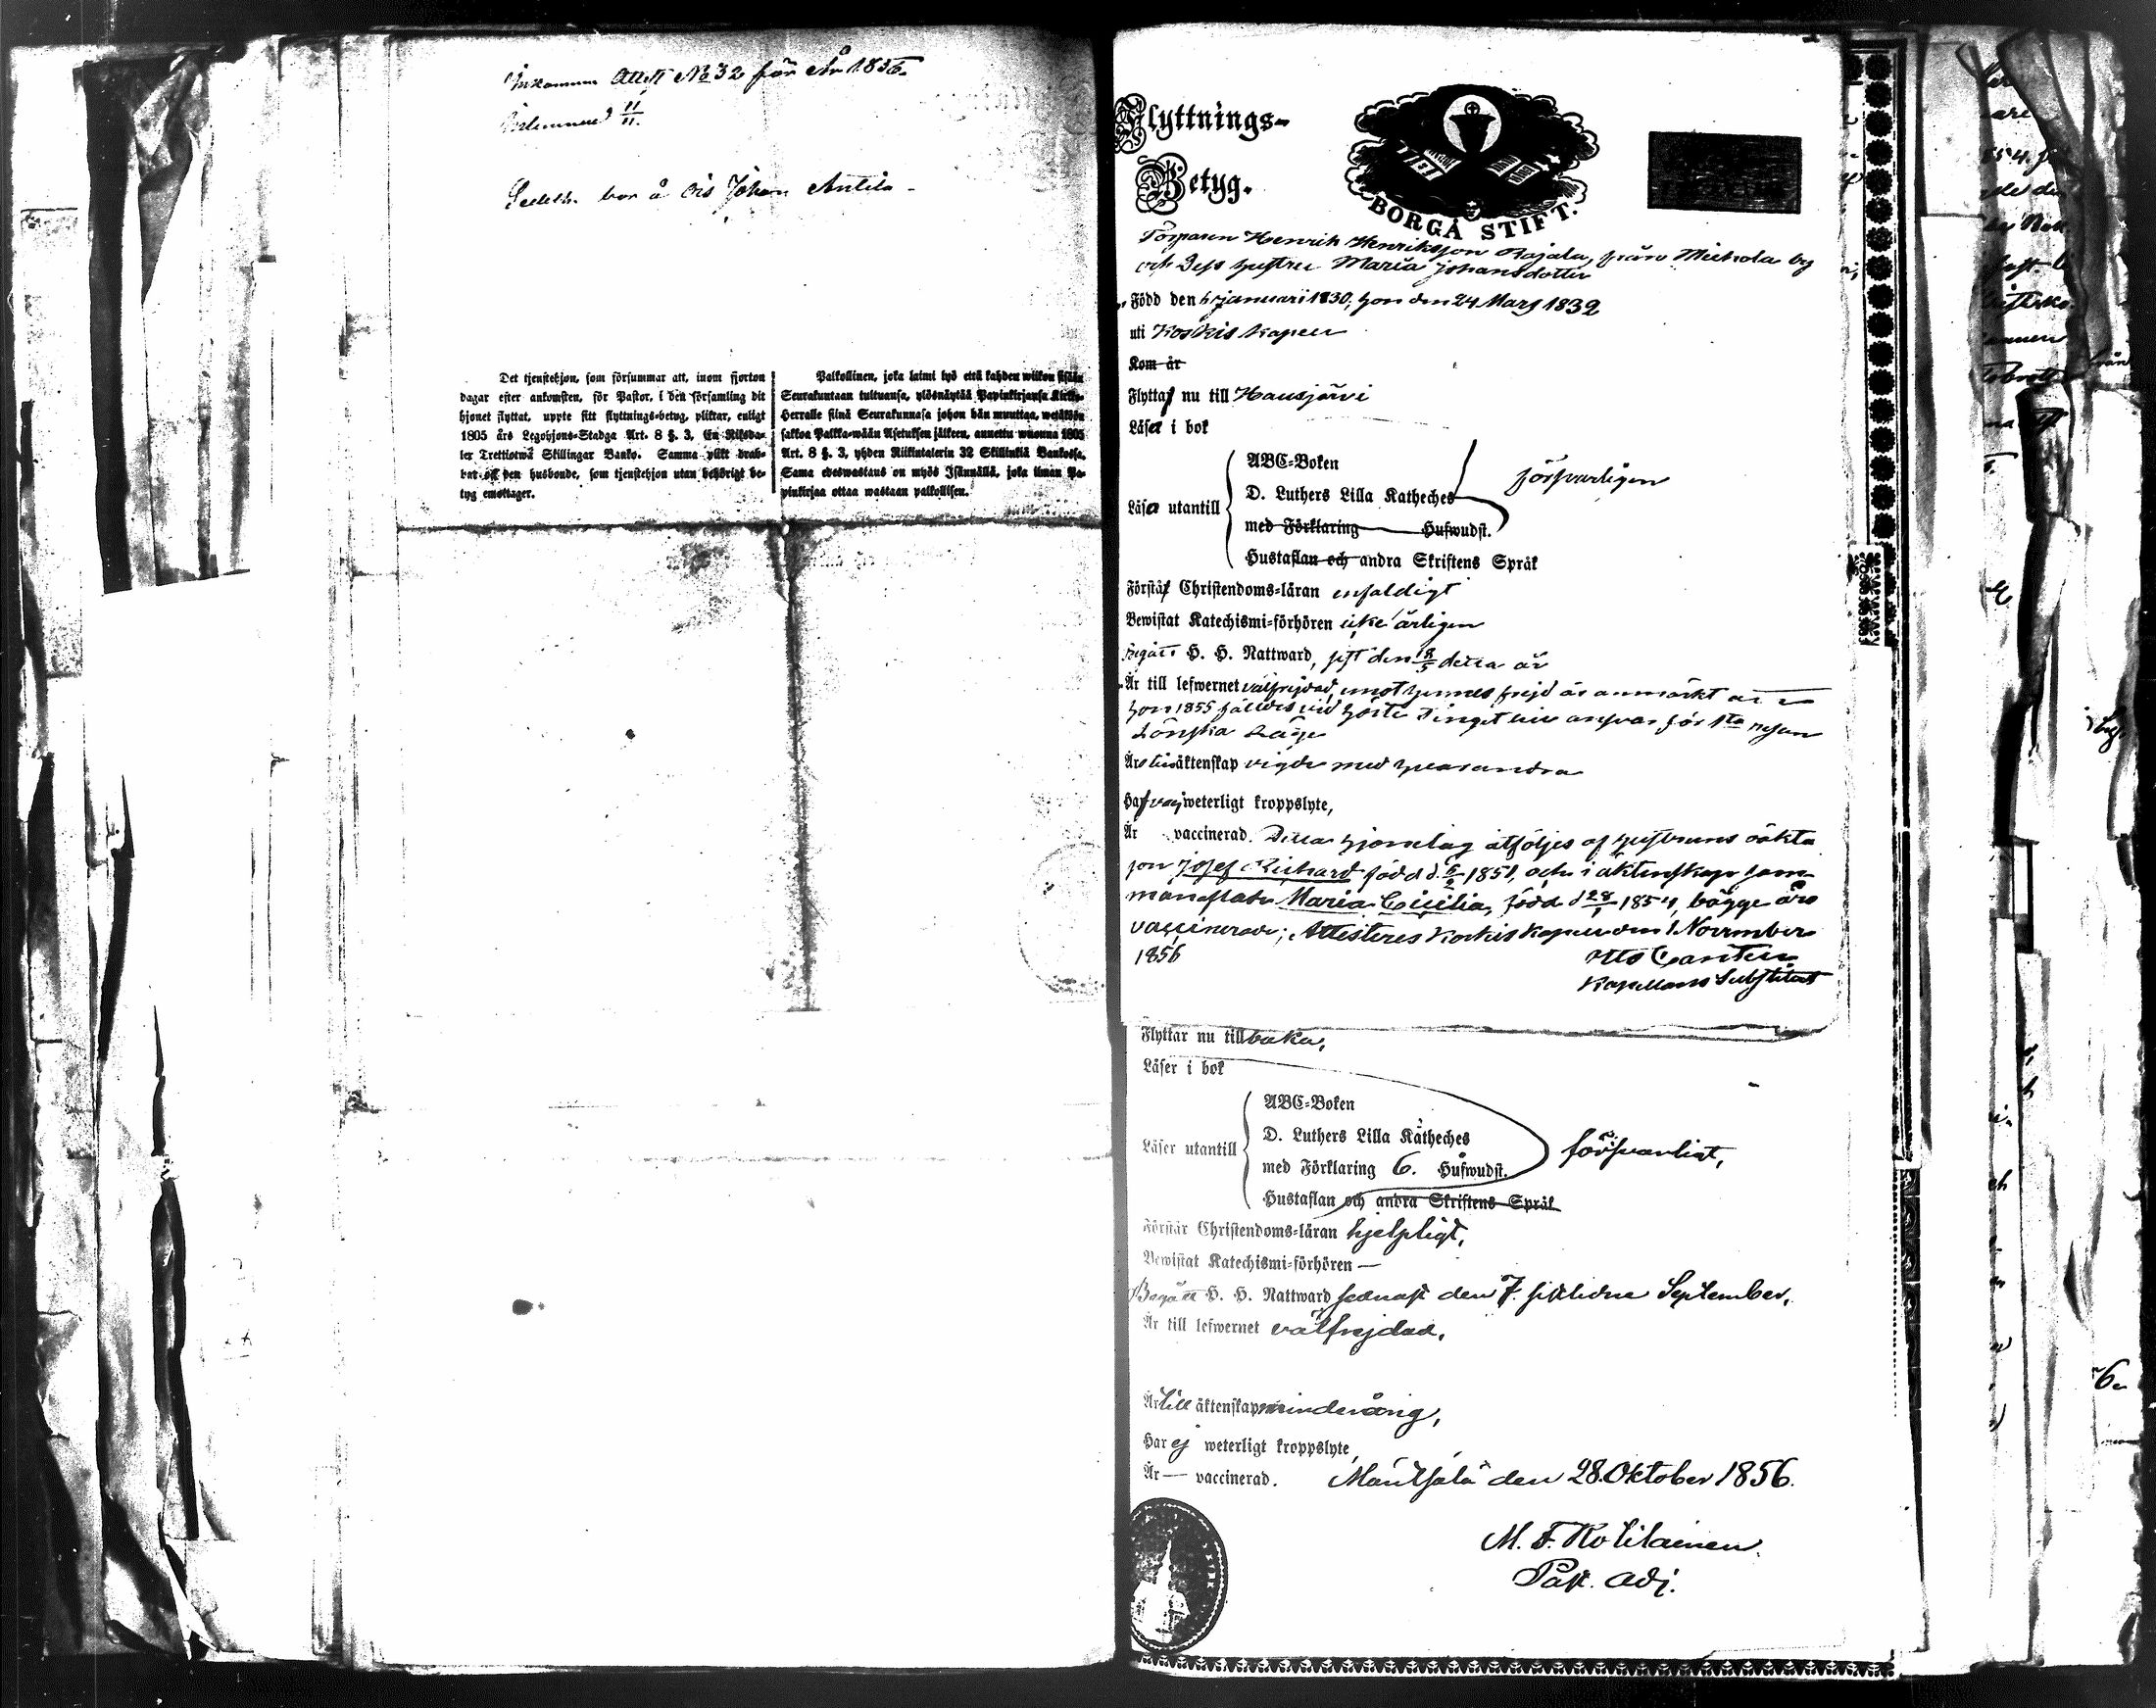 Inkommne Attest No 32 för År 1856.
Inlemnad 11/11.
bor å Johan Antila
Det tjenstehjon, som försummar att, inom fjorton
dagar efter ankomsten, för Pastor, i den församling dit
hjonet flyttat, uppte sitt flyttnings-betyg, pliktar, enligt
1805 års Legohjons-Stadga Art. 8 §. 3. En Riksda-
ler Trettiotwå Skillingar Banko. Samma plikt drab-
bar ock den husbonde, som tjenstehjon utan behörigt be-
tyg emottager.
Palkollinen, joka laimi lyö että kahden wiikon sisään
Seurakuntaan tultuansa, ylösnäytää Papinkirjansa Kirkko-
Herralle siinä Seurakunnasa johon hän muuttaa, wetäköön
sakkoa Palkka-wään Asetuksen jälkeen, annettu wuonna 1805
Art. 8 §. 3, yhden Riikintalerin 32 Skillinkiä Bankossa.
Sama edeswastaus on myös Isännällä, joka ilman Pa-
pinkirjaa ottaa wastaan palkollisen.
Flyttnings-
Betyg.
BORGÅ STIFT.
Torparen Henrik Henriksson Rajala, från Mickola by
och Dess hustru Maria Johansdotter
Född den 6 januari 1830, hon den 24 Mars 1832
uti Koskis kapell
Kom år
Flytta nu till Hausjärvi
Läsa i bok
ABC-Boken
D. Luthers Lilla Katheches
Läsa utantill försvarligen
med Förklaring Hufwudst.
Hustaflan och andra Skriftens Språk
Förstå Christendoms-läran enfaldigt
Bewistat Katechismi-förhören icke årligen
Begått H. H. Nattward, sist den 18/5 detta år
Är till lefwernet välfrejdad, emot hennes frejd är anmärkt att
hon 1855 fälldes vid Höste Tinget till ansvar för 1sta resan
Lönska Läge
Äro till äktenskap vigde med hvarandra
Haf wej weterligt kroppslyte,
Är vaccinerad. Detta hjonelag åtföljes af hustruns oäkta
son Josef Richard född d. 6/2 1851, och i äktenskap sam-
manaflade Maria Cicilia, född d 28/1 1854, bägge äro
vaccinerade; Attesteres Koskis kapell den 1 November
1856
Otto
Kapellans Substitut
Flyttar nu tillbaka,
Läser i bok
ABC-Boken
D. Luthers Lilla Katheches
Läser utantill försvarligt,
med Förklaring 6. Hufwudst.
Hustaflan och andra Skriftens Språk
Förstår Christendoms-läran hjelpligt,
Bewistat Katechismi-förhören —
Begått H. H. Nattward sednast den 7. sistlidne September,
Är till lefwernet välfrejdad,
Är till äktenskap minderårig,
Har ej weterligt kroppslyte,
Är — vaccinerad. Mäntsälä den 28. Oktober 1856.
M. F. Kotilainen
Past. Adj.